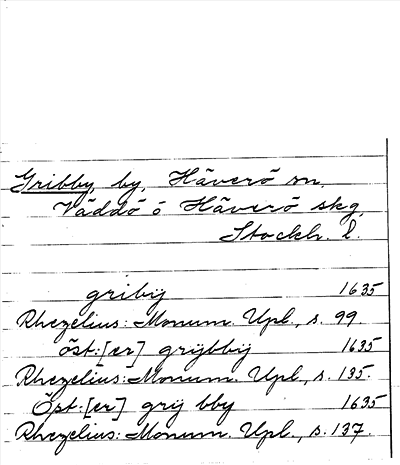 Gribby, by, Häverö sn,
Väddö o Häverö skg,
Stockh. l.
gribÿ 1635
Rhezelius: Monum. Upl., s. 99
öst:[er] grÿbbÿ 1635
Rhezelius: Monum. Upl., s. 135.
Öst:[er] grÿ bby 1635
Rhezelius: Monum. Upl., s. 137.